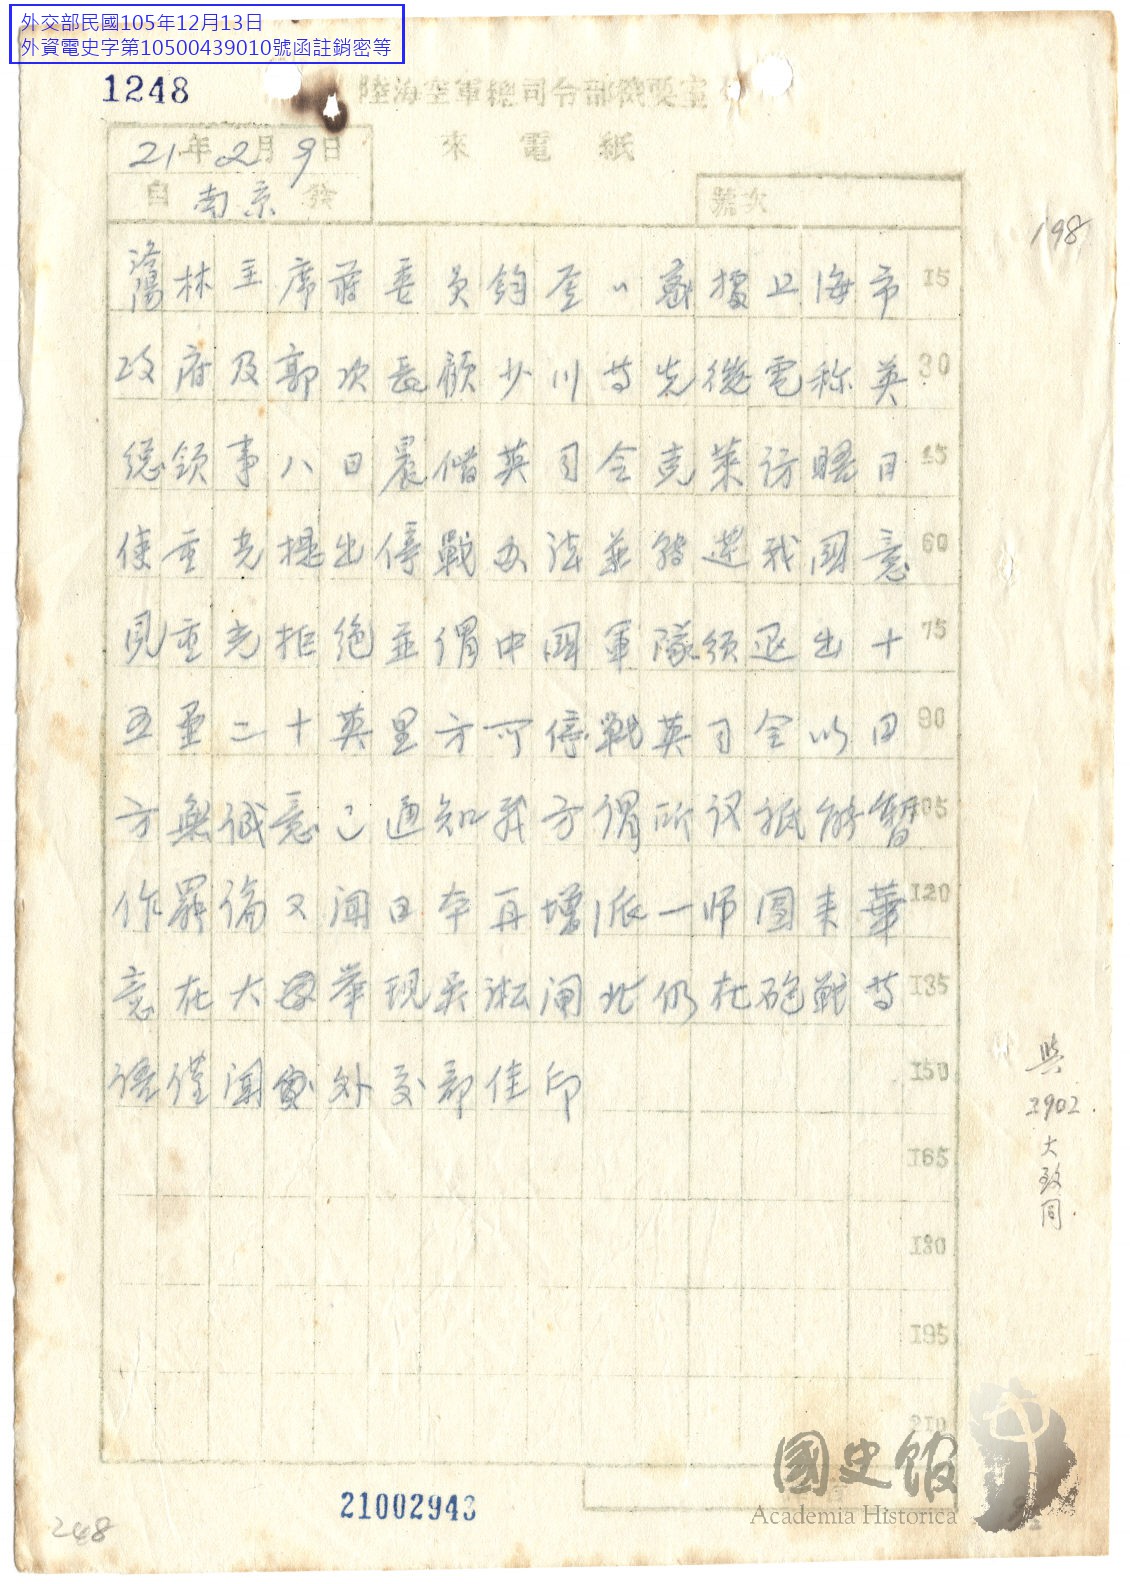 外交部民國105年12月13日
外資電史字第10500439010號函註銷密等
1248
陸海空軍總司令部機要室
來電紙
21年2月9日
自南京發
號次
198
洛陽林主席蔣委員鈞鑒密據上海市 15
政府及郭次長顧少川等先後電称英 30
總領事八日晨偕英司令克萊訪晤日 45
使重光提出停戰办法並轉達我國意 60
見重光拒絕並謂中國軍隊須退出十 75
五至二十英里方可停戰英司令以日 90
方無誠意已通知我方謂所议祇能暫 105
作罷論又聞日本再增派一师團来華 120
意在大舉現吳淞閘北仍在砲戰等 135
语謹聞外交部佳印 150
165
180
195
210
與
2902.
大致同
21002943
248
國史館
Academia Historica